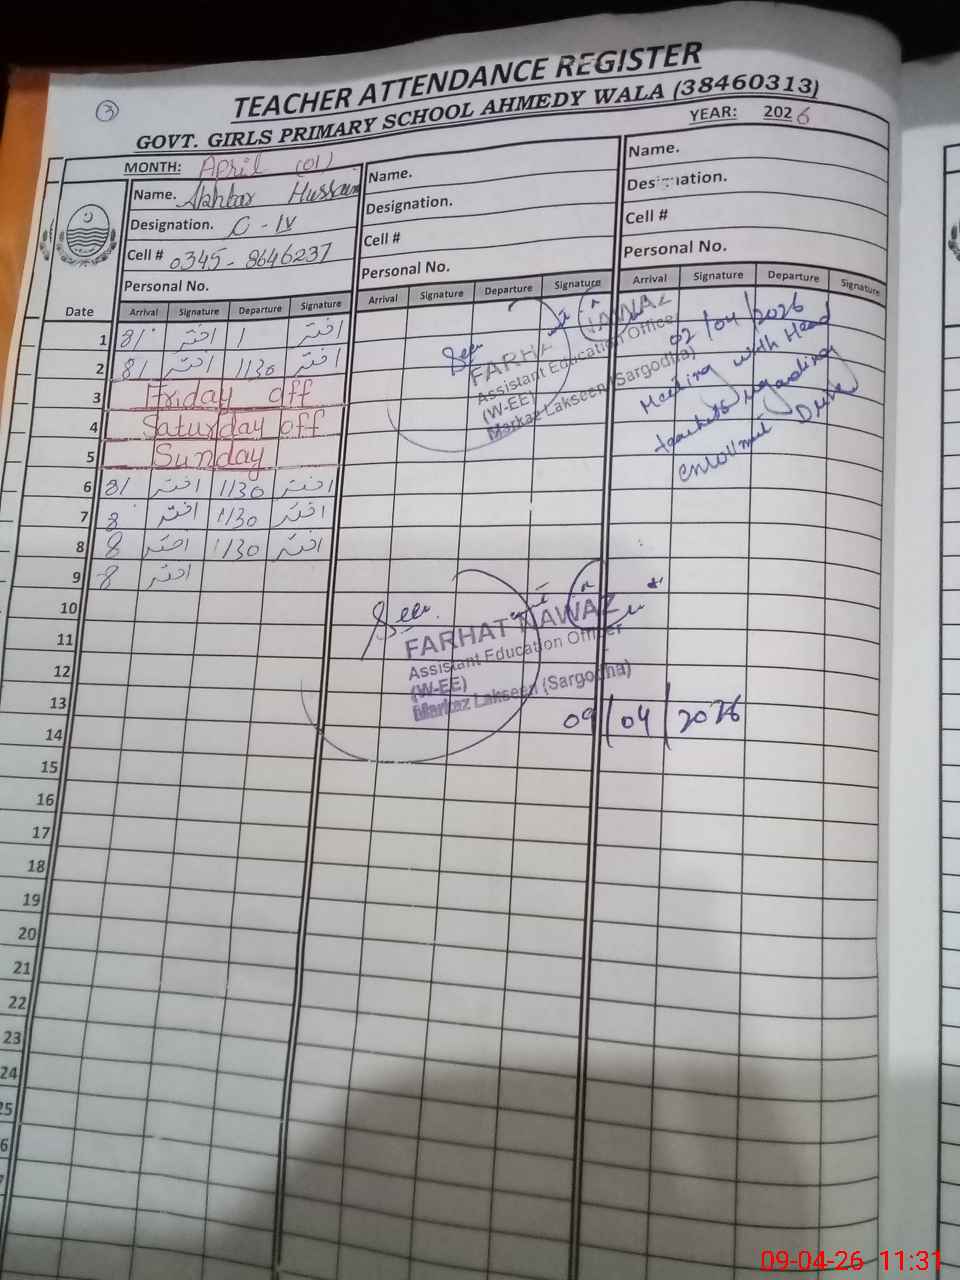 3
TEACHER ATTENDANCE REGISTER
GOVT. GIRLS PRIMARY SCHOOL AHMEDY WALA (38460313)
MONTH: April (01)
YEAR: 2026
Name. Akhtar Hussain
Designation. C-IV
Cell # 0345-8646237
Personal No.
Name.
Designation.
Cell #
Personal No.
Name.
Designation.
Cell #
Personal No.
Date Arrival Signature Departure Signature Arrival Signature Departure Signature Arrival Signature Departure Signature
1 8/ اختر 1 اختر
2 8/ اختر 1130 اختر
3 Friday off
4 Saturday off
5 Sunday
6 8/ اختر 1130 اختر
7 8 اختر 1130 اختر
8 8 اختر 1130 اختر
9 8 اختر
10
11
12
13
14
15
16
17
18
19
20
21
22
23
24
25
6
7
Seen
FARHAT NAWAZ
Assistant Education Officer
(W-EE)
Markaz Lakseen (Sargodha)
02/04/2026
Meeting with Head
teachers regarding
enrollment Drive
Seen.
FARHAT NAWAZ
Assistant Education Officer
(W-EE)
Markaz Lakseen (Sargodha)
09/04/2026
09-04-26 11:31